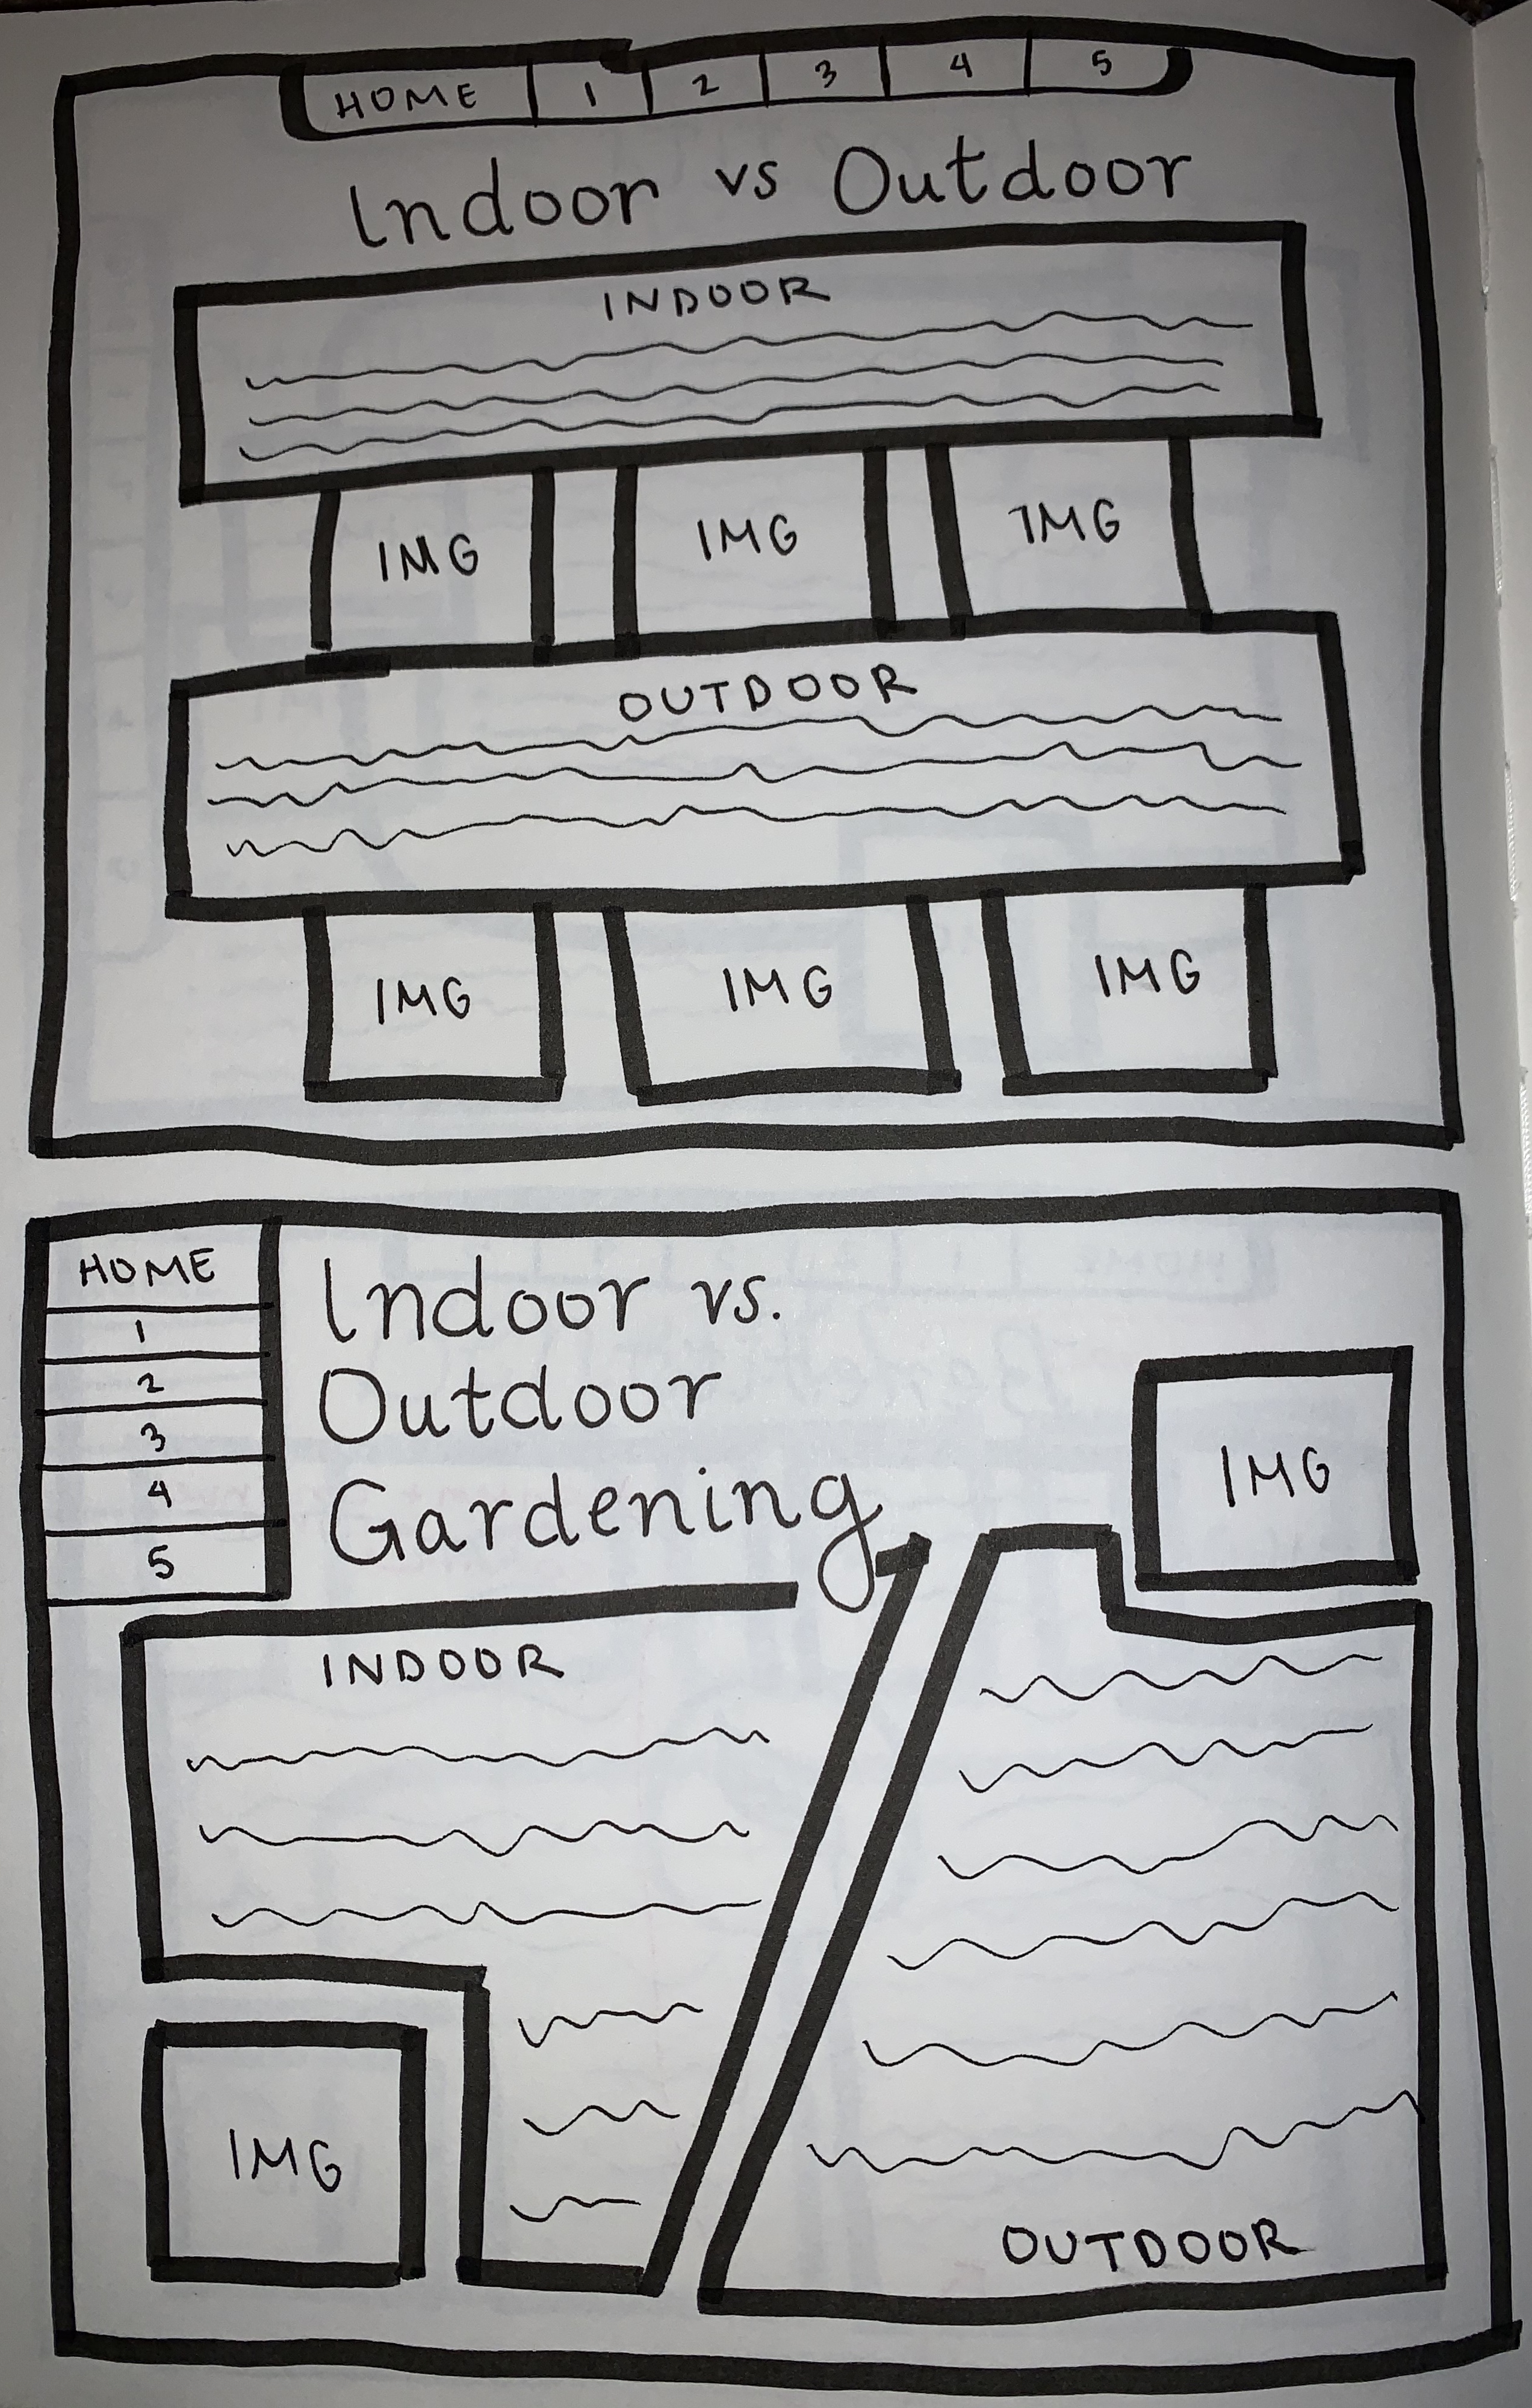 HOME 1 2 3 4 5
Indoor vs Outdoor
INDOOR
IMG IMG IMG
OUTDOOR
IMG IMG IMG
HOME
1
2
3
4
5
Indoor vs.
Outdoor
Gardening
IMG
INDOOR
IMG
OUTDOOR